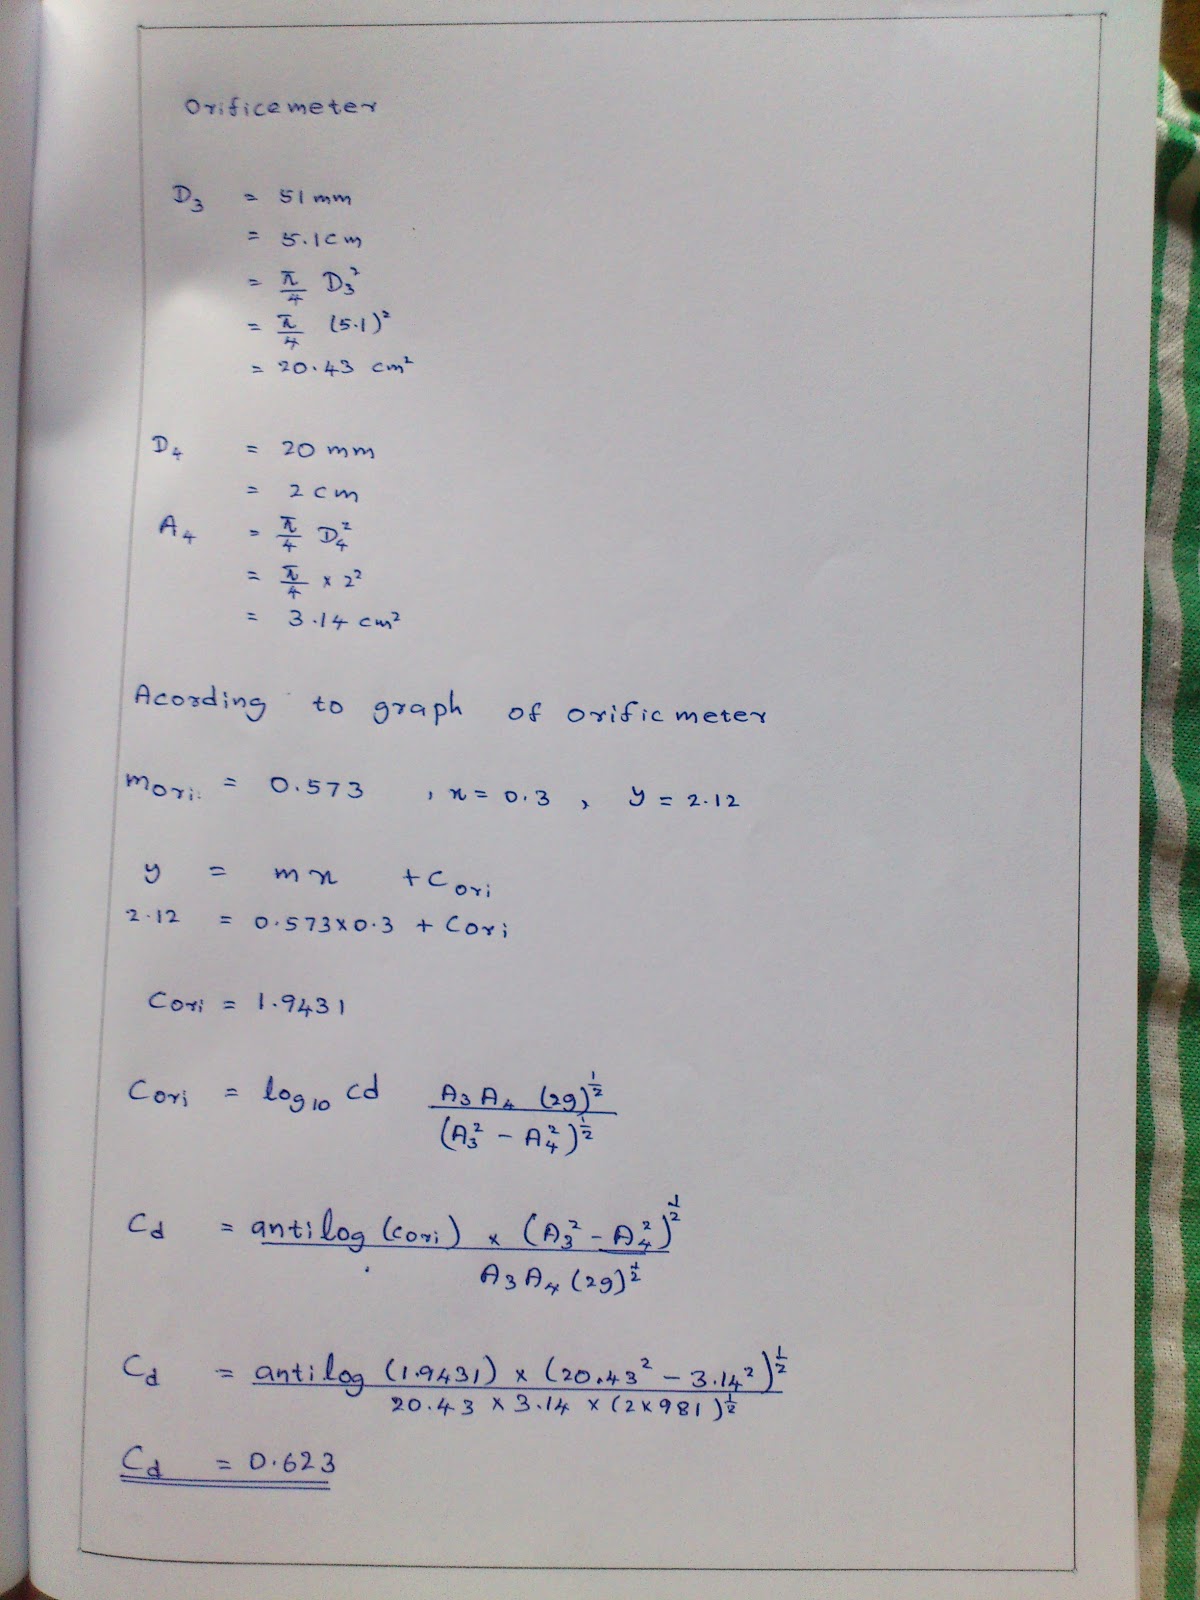 Orificemeter
D₃ = 51 mm
= 5.1cm
= π/4 D₃²
= π/4 (5.1)²
= 20.43 cm²
D₄ = 20 mm
= 2 cm
A₄ = π/4 D₄²
= π/4 × 2²
= 3.14 cm²
Acording to graph of orific meter
m ori = 0.573 , x = 0.3 , y = 2.12
y = mx + C ori
2.12 = 0.573×0.3 + Cori
Cori = 1.9431
Cori = log₁₀ Cd A₃ A₄ (2g)^½ / (A₃² - A₄²)^½
Cd = antilog (Cori) × (A₃² - A₄²)^½ / A₃ A₄ (2g)^½
Cd = antilog (1.9431) × (20.43² - 3.14²)^½ / 20.43 × 3.14 × (2×981)^½
Cd = 0.623